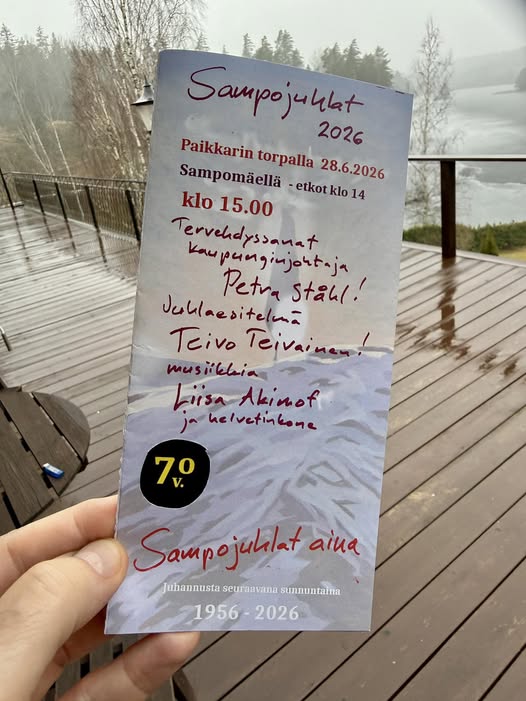 Sampojuhlat
2026
Paikkarin torpalla 28.6.2026
Sampomäellä - etkot klo 14
klo 15.00
Tervehdyssanat
kaupunginjohtaja
Petra Ståhl!
Juhlaesitelmä
Teivo Teivainen!
musiikkia
Liisa Akimof
ja helvetinkone
70
v.
Sampojuhlat aina
Juhannusta seuraavana sunnuntaina
1956 - 2026